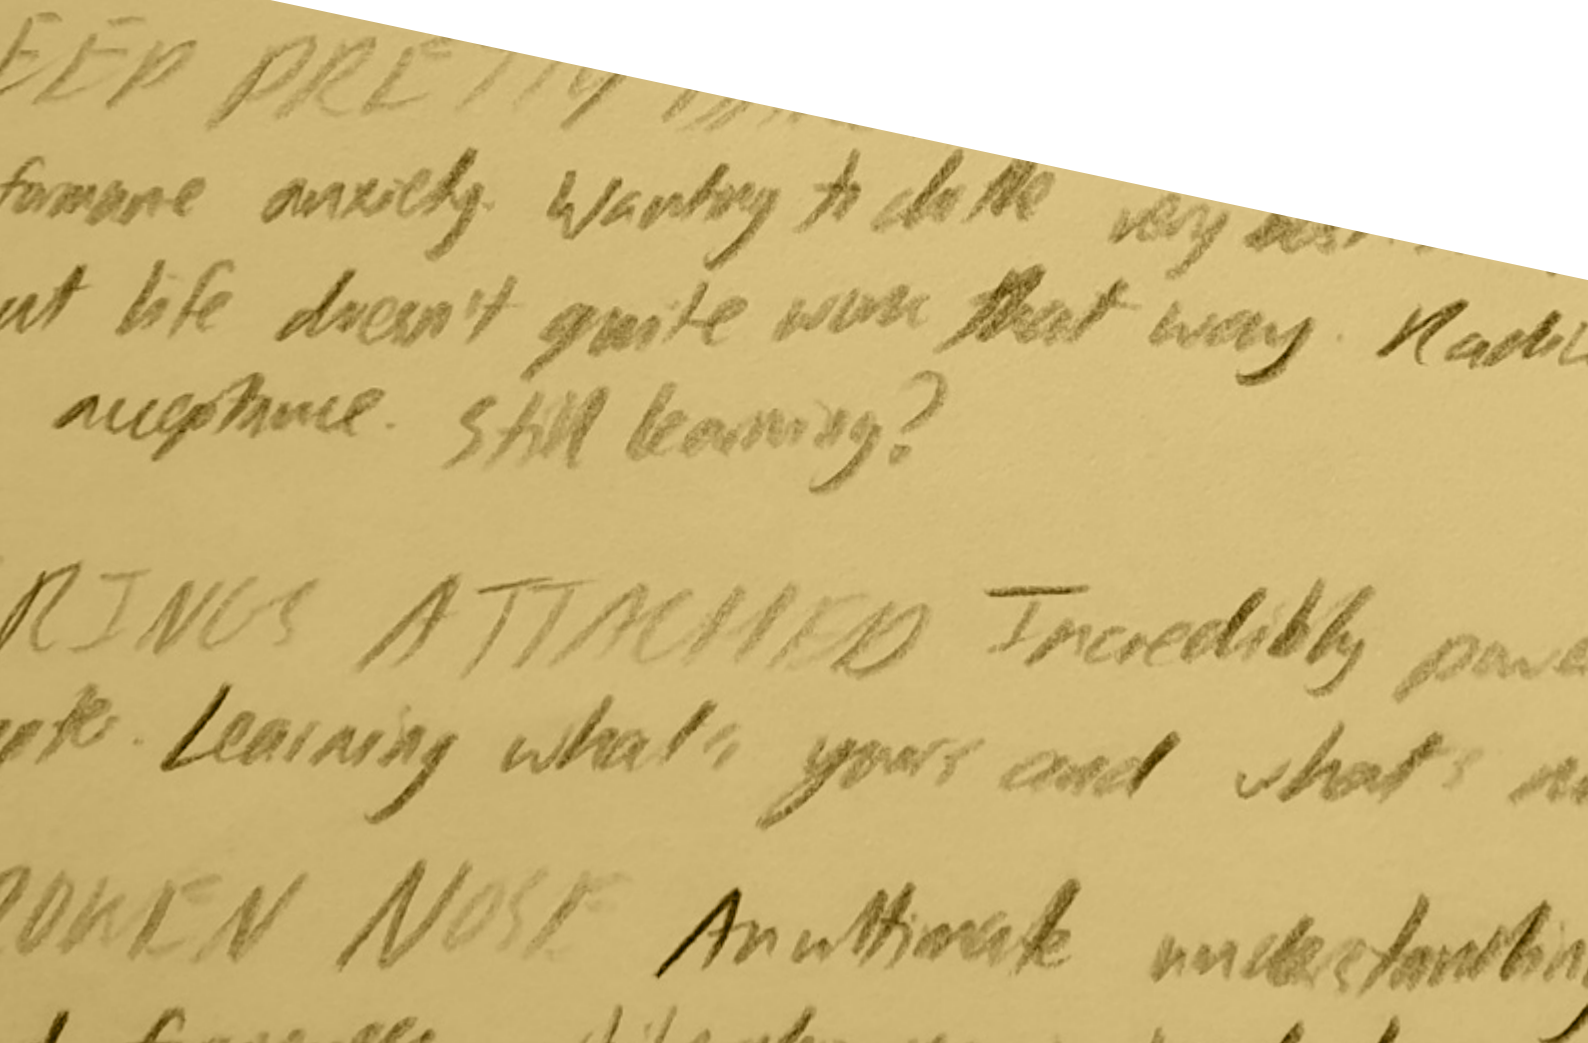 EEP PRETTY
formance anxiety. Wanting to do the very best
ut life doesn't quite work that way. Radic
acceptance. Still learning?
RINGS ATTACHED Incredibly powe
Learning what's yours and what's no
ROKEN NOSE An ultimate understanding